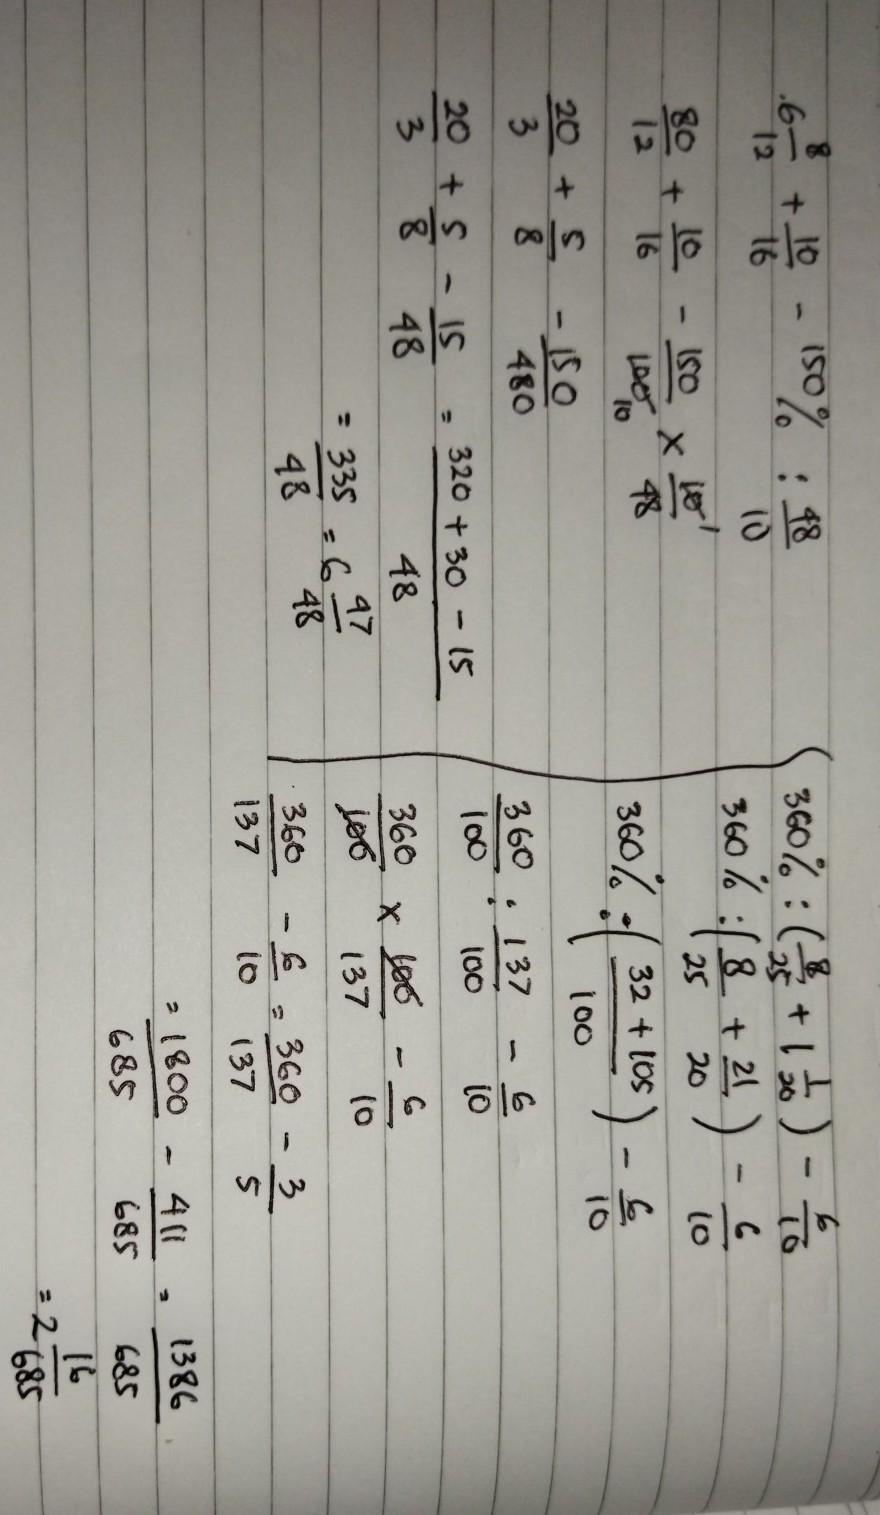 6 8/12 + 10/16 - 150% : 48/10
80/12 + 10/16 - 150/100 10 × 10 1/48
20/3 + 5/8 - 150/480
20/3 + 5/8 - 15/48 = 320 + 30 - 15/48
= 335/48 = 6 47/48
360% : (8/25 + 1 1/20) - 6/10
360% : (8/25 + 21/20) - 6/10
360% : (32 + 105/100) - 6/10
360/100 : 137/100 - 6/10
360/100 × 100/137 - 6/10
360/137 - 6/10 = 360/137 - 3/5
= 1800/685 - 411/685 = 1386/685
= 2 16/685